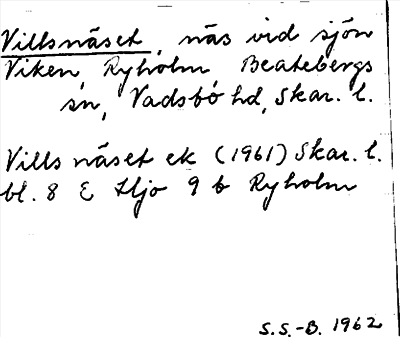 Villsnäset, näs vid sjön
Viken, Ryholm Beatebergs
sn, Vadsbo hd, Skar. l.
Vills näset ek (1961) Skar. l.
bl. 8 E Hjo 9 b Ryholm
S.S.-B. 1962